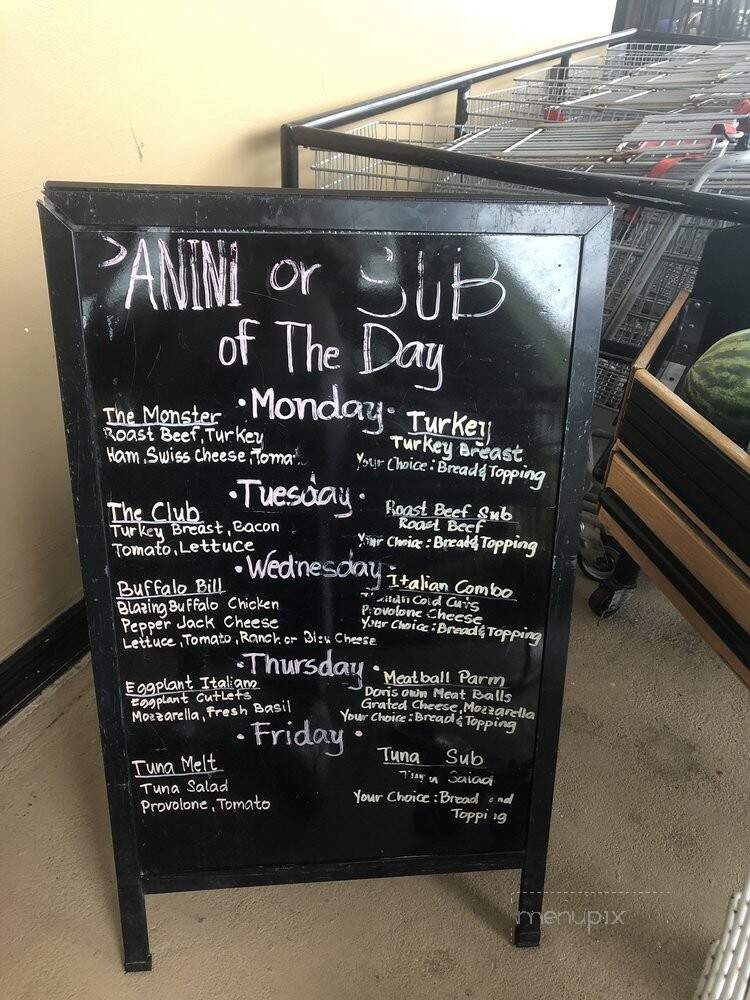 PANINI or SUB
of The Day
·Monday·
The Monster
Roast Beef, Turkey
Ham, Swiss Cheese, Toma
Turkey
Turkey Breast
Your Choice: Bread & Topping
·Tuesday·
The Club
Turkey Breast, Bacon
Tomato, Lettuce
Roast Beef Sub
Roast Beef
Your Choice: Bread & Topping
·Wednesday·
Buffalo Bill
Blazing Buffalo Chicken
Pepper Jack Cheese
Lettuce, Tomato, Ranch or Bleu Cheese
Italian Combo
Italian Cold Cuts
Provolone Cheese
Your Choice: Bread & Topping
·Thursday·
Eggplant Italiano
Eggplant Cutlets
Mozzarella, Fresh Basil
Meatball Parm
Doris own Meat Balls
Grated Cheese, Mozzarella
Your Choice: Bread & Topping
·Friday·
Tuna Melt
Tuna Salad
Provolone, Tomato
Tuna Sub
Salad
Your Choice: Bread and
Topping
menupix